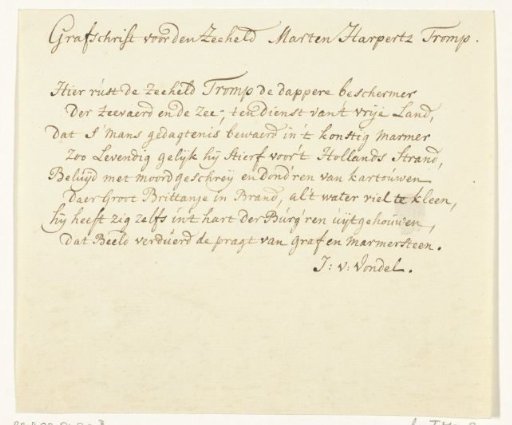 Grafschrift voor den Zeeheld Marten Harpertz Tromp.
Hier rúst de Zeeheld Tromp de dappere beschermer
Der zeevaerd en de Zee, ten dienst van't vrije Land,
Dat s' mans gedagtenis bewaerd in 't konstig marmer
Zoo Levendig gelijk hij Stierf voor't Hollands Strand,
Belúÿd met moord geschreÿ en dond'ren van kartoúwen
Daer Groot Brittanje in Brand, al't water viel te kleen,
hij heeft zig zelfs in't hart der Búrg'ren uÿtgehoúwen,
Dat Beeld verdúerd de pragt van Graf en Marmersteen.
J: v: Vondel.